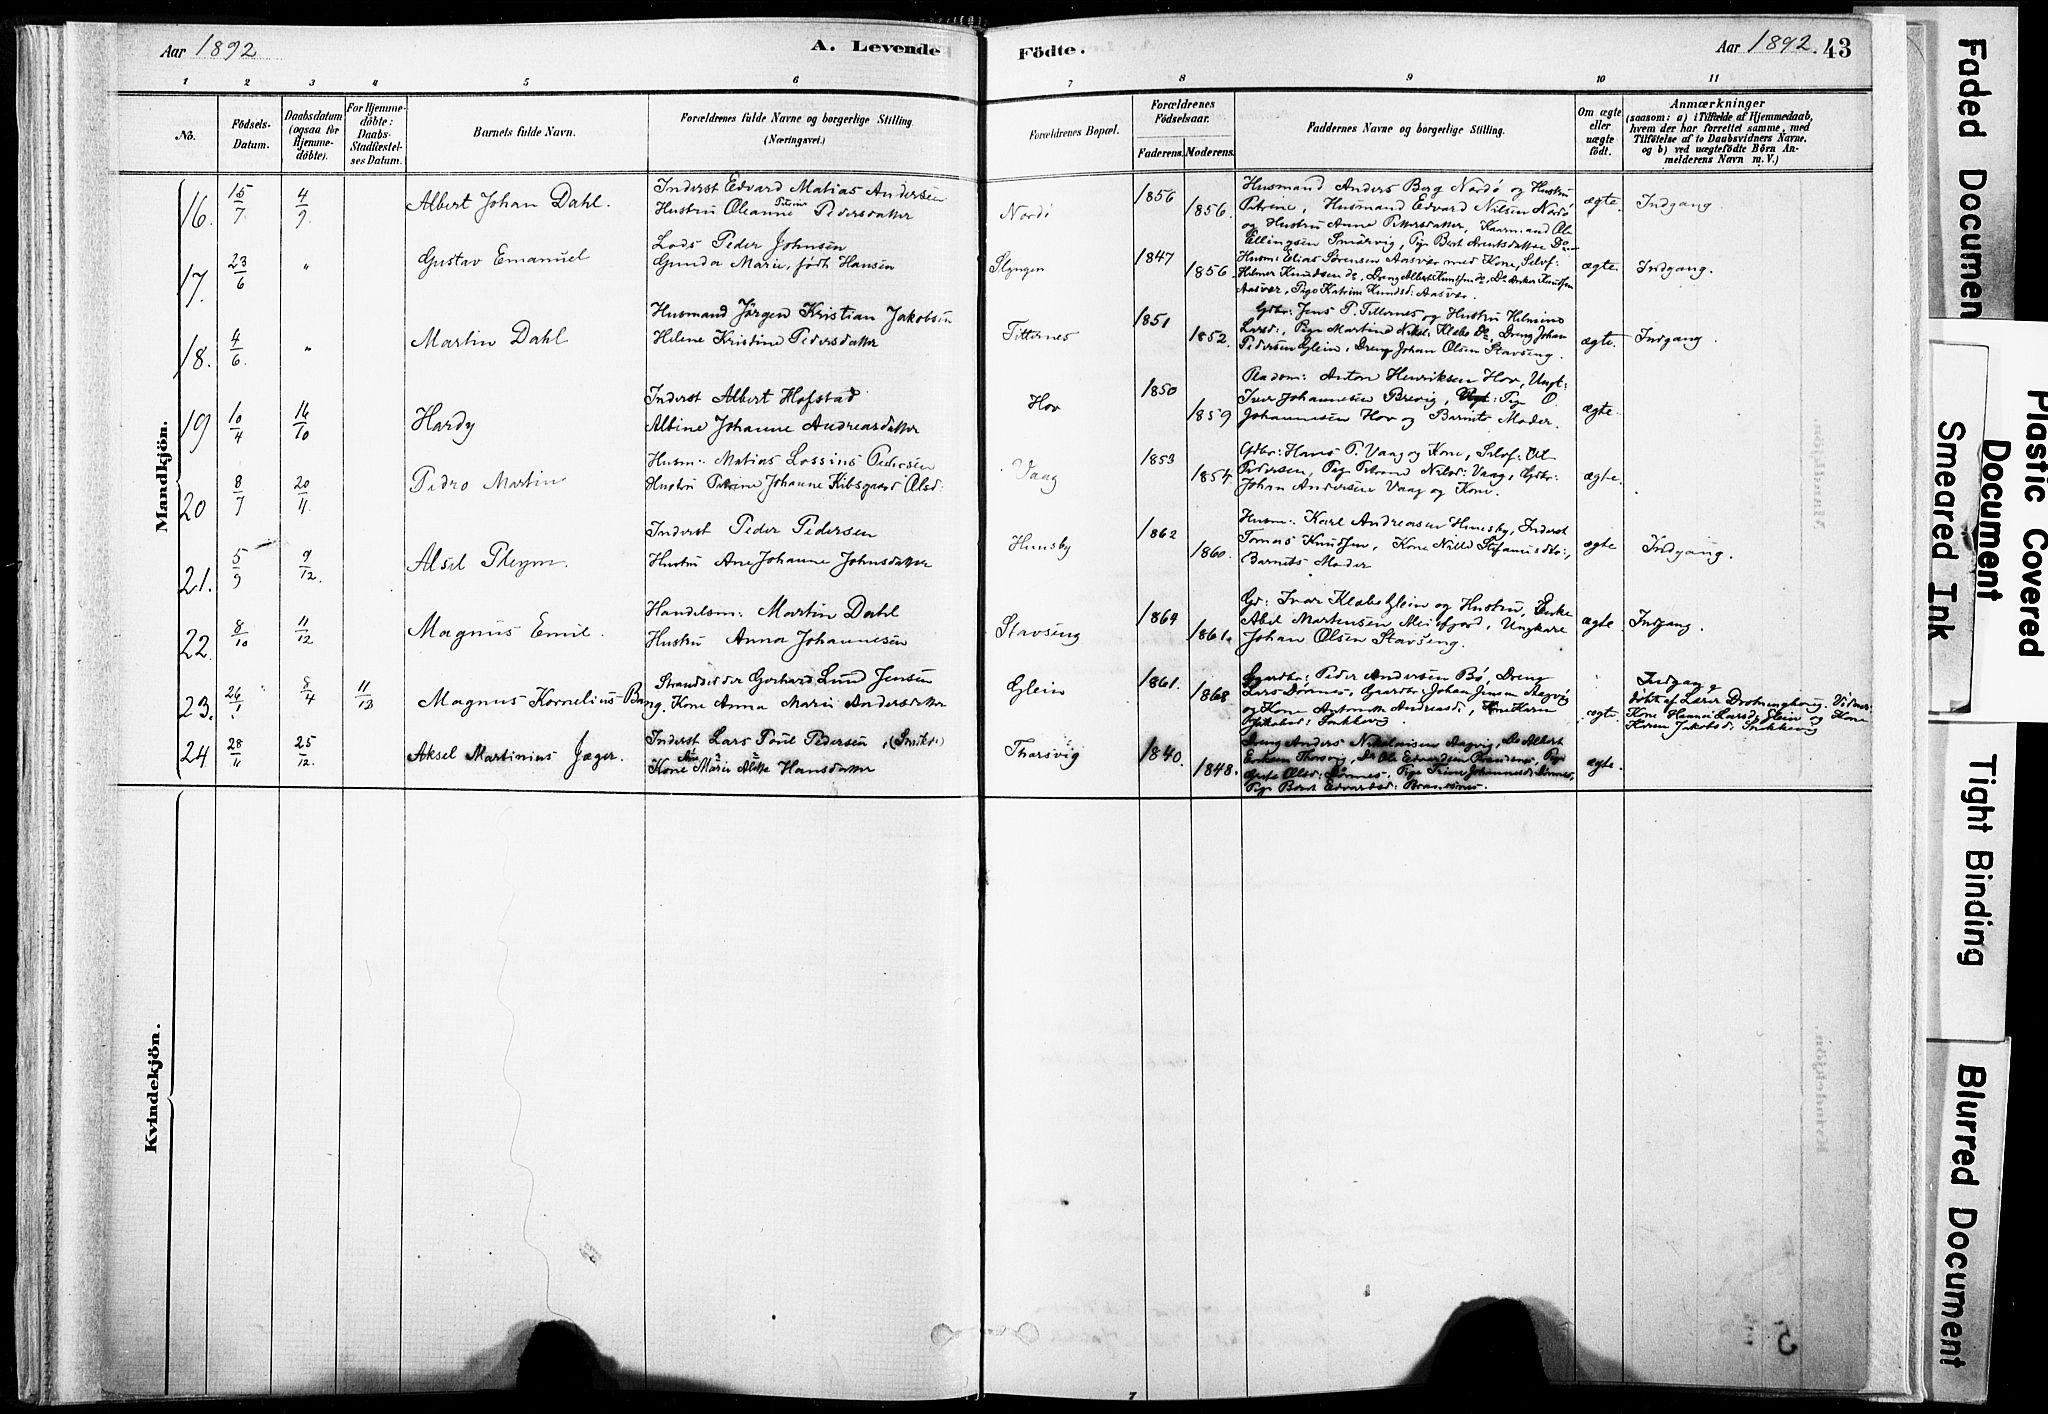 Aar 1892
A. Levende
Födte.
Aar 1892.
43
1 2 3 4 5 6 7 8 9 10 11
No.
Födsels-
Datum.
Daabsdatum
(ogsaa for
Hjemme-
döbte).
For Hjemme-
döbte:
Daabs-
Stadfæstel-
ses Datum.
Barnets fulde Navn.
Forældrenes fulde Navne og borgerlige Stilling
(Næringsvei.)
Forældrenes Bopæl.
Forældrenes
Födselsaar.
Faderens.
Moderens.
Faddernes Navne og borgerlige Stilling.
Om ægte
eller
uægte
födt.
Anmærkninger
(saasom: a) i Tilfælde af Hjemmedaab,
hvem der har forrettet samme, med
Tilföielse af to Daabsvidners Navne.
og b) ved uægtefödte Börn An-
melderens Navn m. V.)
Mandkjön.
16. 15/7 4/9 Albert Johan Dahl.
Inderst Edvard Matias Andersen
Hustru Oleanne Petrine Pedersdatter
Nordö 1856 1856.
Husmand Anders Berg Nordö og Hustru
Petrine, Husmand Edvard Nilsen Nordö
og Hustru Anne Pettersdatter, Kaarmand Ole
Ellingsen Smörvig, Pige Berit
ægte. Indgang.
17. 23/6 " Gustav Emanuel
Lods Peder Johnsen
Gunda Marie, født Hansen
Slyngen 1847 1856.
Husm: Elias Sørensen Aasvær med Kone, Selvf:
Helmer Knudsen do, Dreng Albert Knudsen do, Do Anker Knudsen
Aasvær, Pige Katrine Knudsd: Aasvær.
ægte. Indgang.
18. 4/6 " Martin Dahl
Husmand Jörgen Kristian Jakobsen
Helene Kristine Pedersdatter
Titternes 1851 1852.
Gdbr: Jens P. Titternes og Hustru Helmine
Larsd:, Pige Martine Nikol: Klæbo Do, Dreng Johan
Pedersen Glein, Dreng Johan Olsen Stavseng.
ægte. Indgang.
19 10/4 16/10 Hardy
Inderst Albert Hofstad
Albine Johanne Andreasdatter
Hov 1850 1859
Anton Henriksen Hov, Ungk:
Iver Johannesen Brevig, Pige O.
Johannesen Hov og Barnets Moder.
ægte.
20 8/7 20/11. Pedro Martin
Husm: Matias Lossius Pedersen
Hustru Petrine Johanne Kibsgaard Olsd:
Vaag 1853 1854
Gdbr: Hans P. Vaag og Kone, Selvf:
Pedersen, Pige Petrine Nilsd: Vaag, Gdbr:
Johan Andersen Vaag og Kone.
ægte.
21. 5/9 9/12.
Inderst Peder Pedersen
Hustru Ane Johanne Johnsdatter
Hunsby 1862 1860.
Husm: Karl Andreasen Hunsby, Inderst
Tomas Knudsen, Kone
Barnets Moder
ægte Indgang.
22. 8/10 11/12 Magnus Emil.
Handelsm: Martin Dahl
Hustru Anna Johannesen
Stavseng 1864 1861.
Gd: Ivar Klæbo Glein og Hustru, Enke
Abel Martensen Meisfjord, Ungkarl
Johan Olsen Stavseng.
ægte. Indgang.
23. 26/1 8/4 11/13 Magnus Kornelius Bang.
Strandsidder Gerhard Lund Jensen
Kone Anna Marie Andersdatter
Glein 1861. 1868
Gaardbr: Peder Andersen Bö, Dreng
Lars Dörmes, Gaardbr: Johan Jensen Aagvig
og Kone Antonette Andreasd:, Kone Karen
Jakobsd:
ægte.
Indgang
döbt af Lærer Vidner:
Kone Hanna Larsd: Glein og Kone
Karen Jakobsd:
24 28/11 25/12. Aksel Martinius Jæger.
Inderst Lars Poul Pedersen, (Smikst)
Kone Ane Marie Hansdatter
Tharsvig 1840. 1848.
Dreng Anders Nikolaisen Aagvig, Do Albert
Eriksen Thorsvig, Do Ole Edvardsen Brandsnes, Pige
Olsd: Dörmes, Pige Trine Johannesd: Dörmes,
Pige Berit Edvardsd: Brandsnes.
ægte.
Kvindekjön.
7
Faded Document
Plastic Covered
Document
Smeared Ink
Tight Binding
Blurred Document